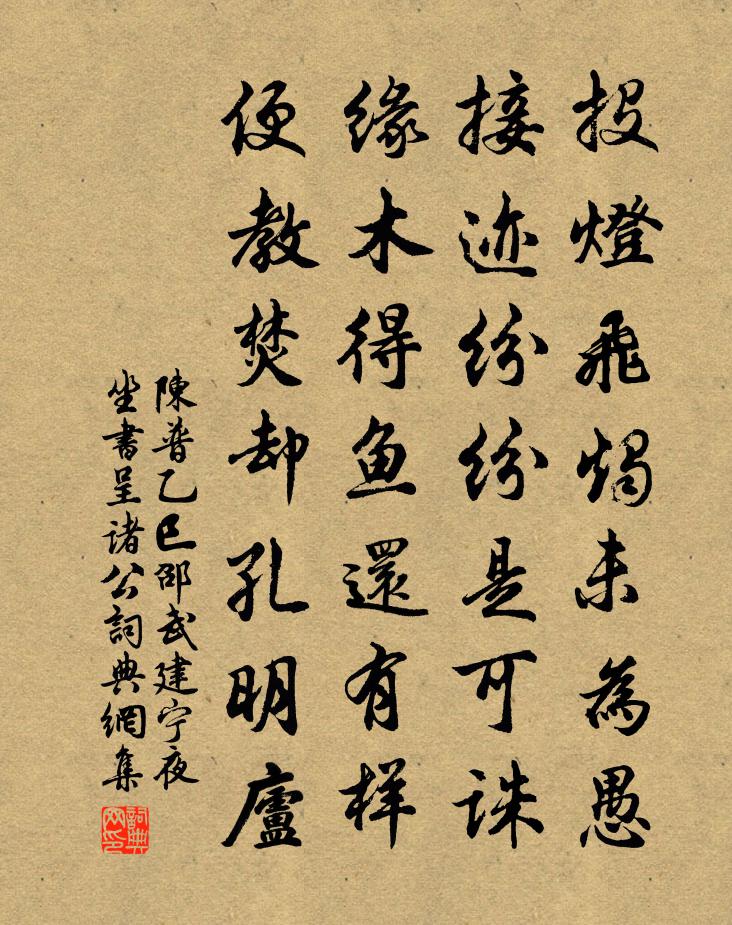 投燈飛燭未為愚
接迹紛紛是可誅
緣木得魚還有样
便教焚却孔明廬
陳普乙巳邵武建宁夜
坐書呈諸公詞典網集
詞典
网印